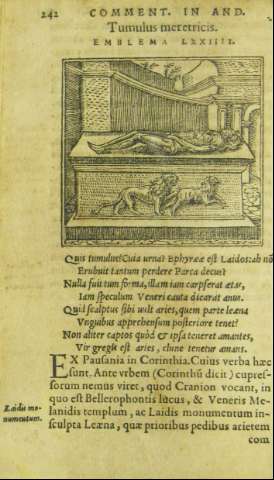 242 COMMENT. IN AND.
Tumulus meretricis.
EMBLEMA LXXIIII.
Quis tumulus? Cuia urna? Ephyreæ est Laidos: ah nõ
Erubuit tantum perdere Parca decus?
Nulla fuit tum forma, illam iam carpserat ætas,
Iam speculum Veneri cauta dicarat anus.
Quid scalptus sibi uult aries, quem parte leæna
Vnguibus apprehensum posteriore tenet?
Non aliter captos quòd & ipsa teneret amantes,
Vir gregis est aries, clune tenetur amans.
EX Pausania in Corinthia. Cuius verba hæc
sunt. Ante vrbem (Corinthũ dicit) cupres-
sorum nemus viret, quod Cranion vocant, in
quo est Bellerophontis lucus, & Veneris Me-
Laidis mo-
numentum.
lanidis templum, ac Laidis monumentum in-
sculpta Leæna, quæ prioribus pedibus arietem
com